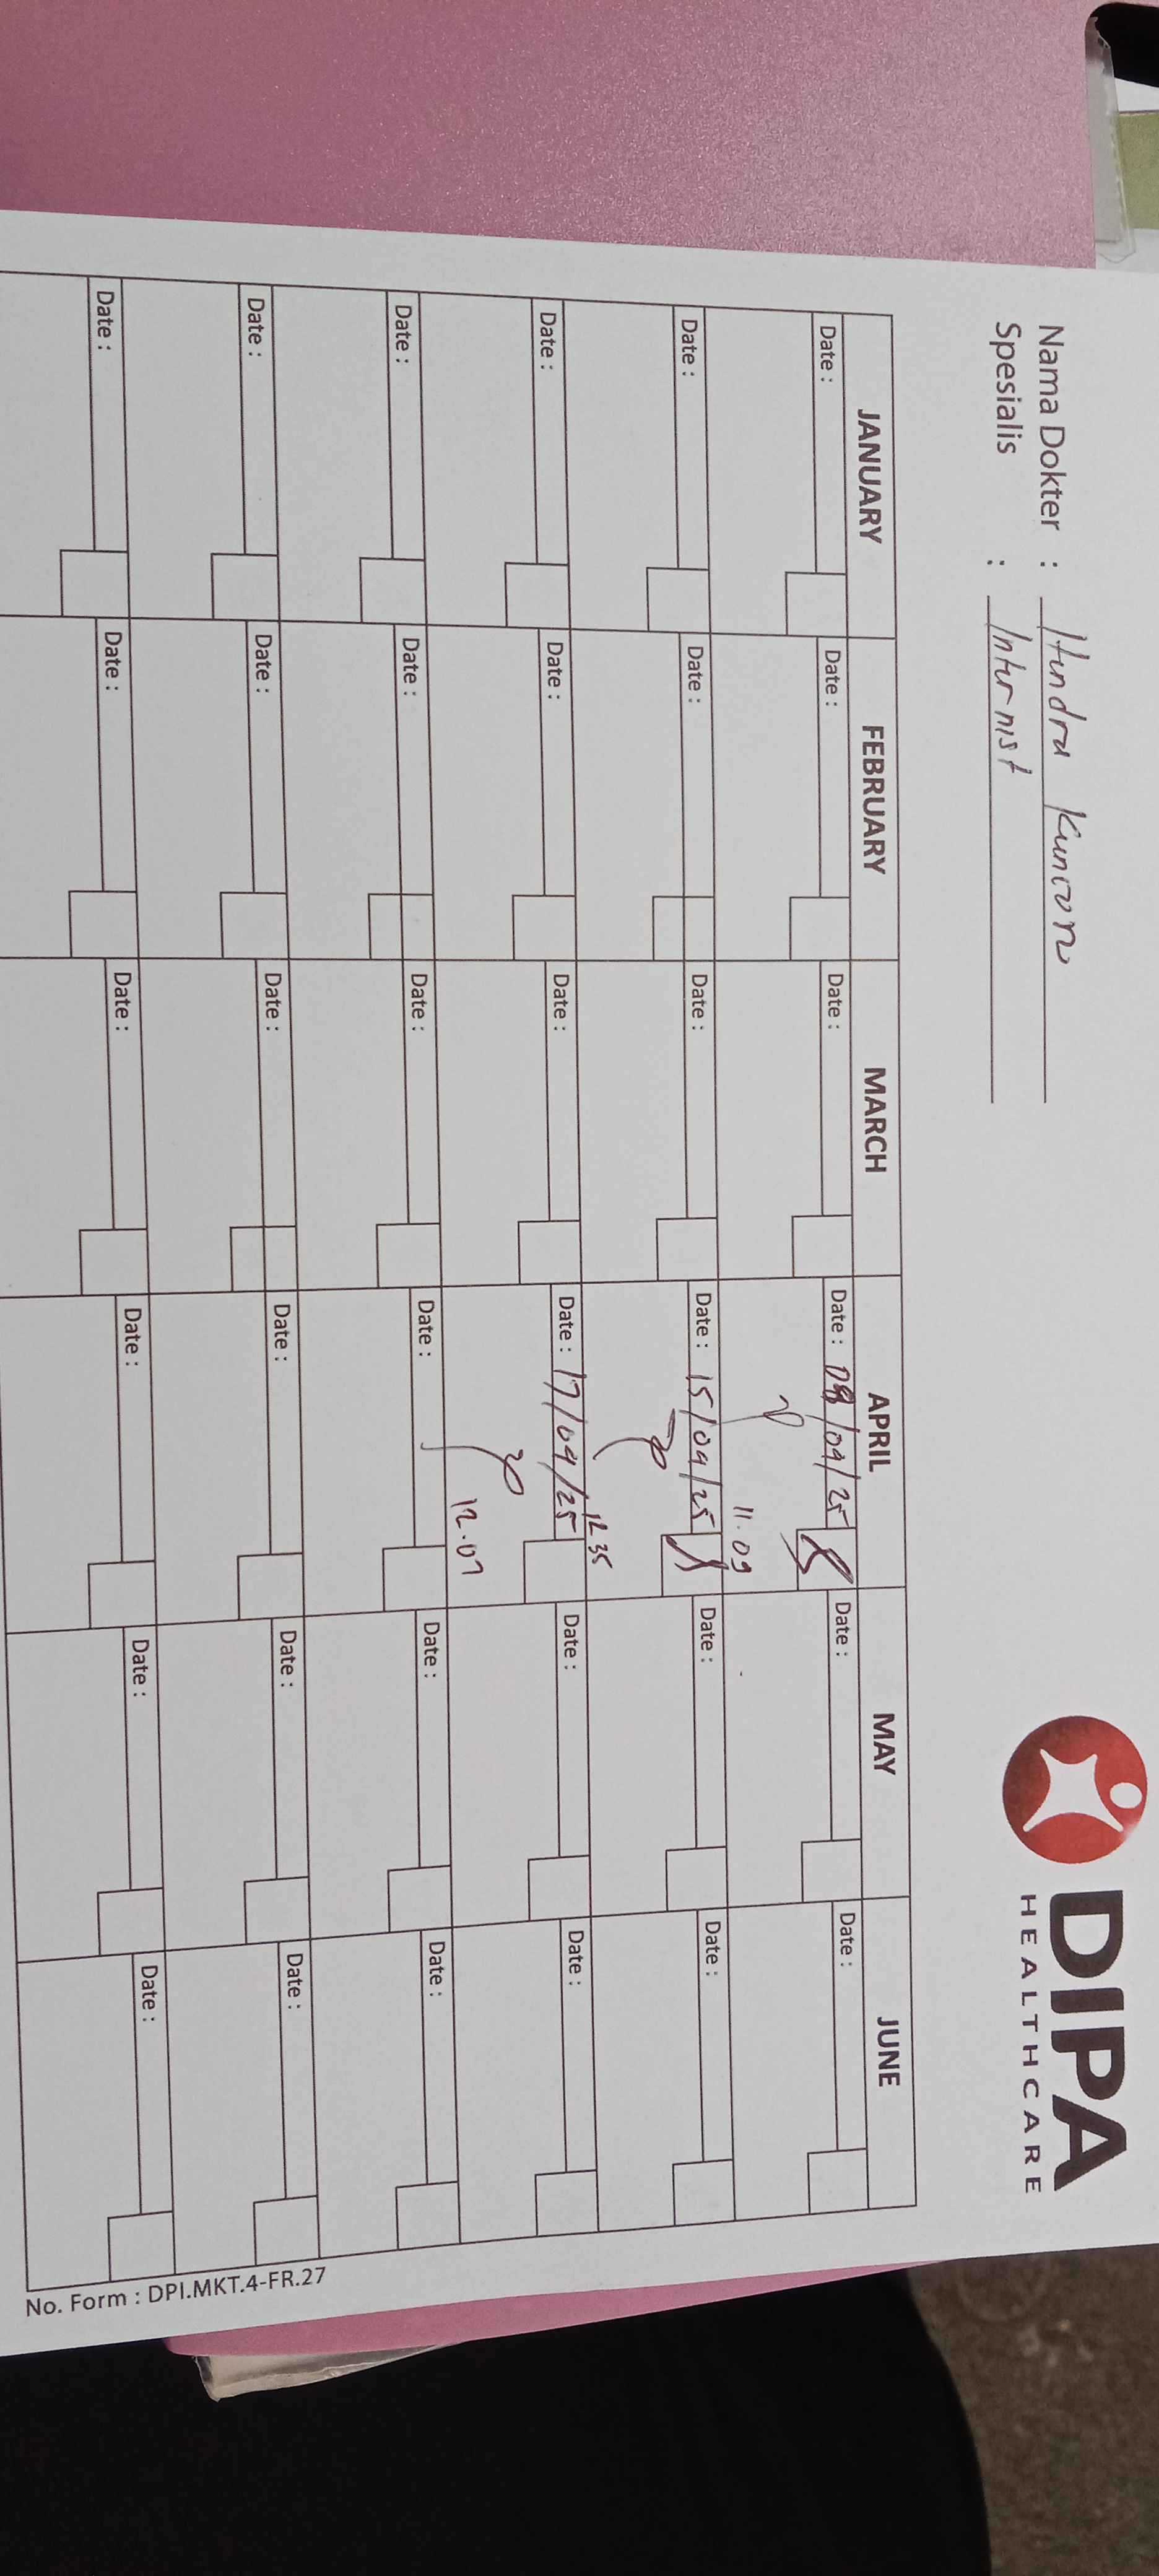 DIPA
HEALTHCARE
Nama Dokter : Hendra Kuncoro
Spesialis : Internist
JANUARY FEBRUARY MARCH APRIL MAY JUNE
Date : Date : Date : Date : 08/04/25 Date : Date :
11.09
Date : Date : Date : Date : 15/04/25 Date : Date :
12 35
Date : Date : Date : Date : 17/04/25 Date : Date :
12.07
Date : Date : Date : Date : Date : Date :
Date : Date : Date : Date : Date : Date :
Date : Date : Date : Date : Date : Date :
No. Form : DPI.MKT.4-FR.27